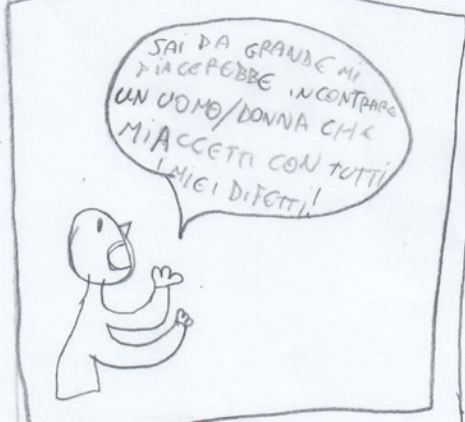 SAI DA GRANDE MI
PIACEREBBE INCONTRARE
UN UOMO/DONNA CHE
MI ACCETTI CON TUTTI
I MIEI DIFETTI!